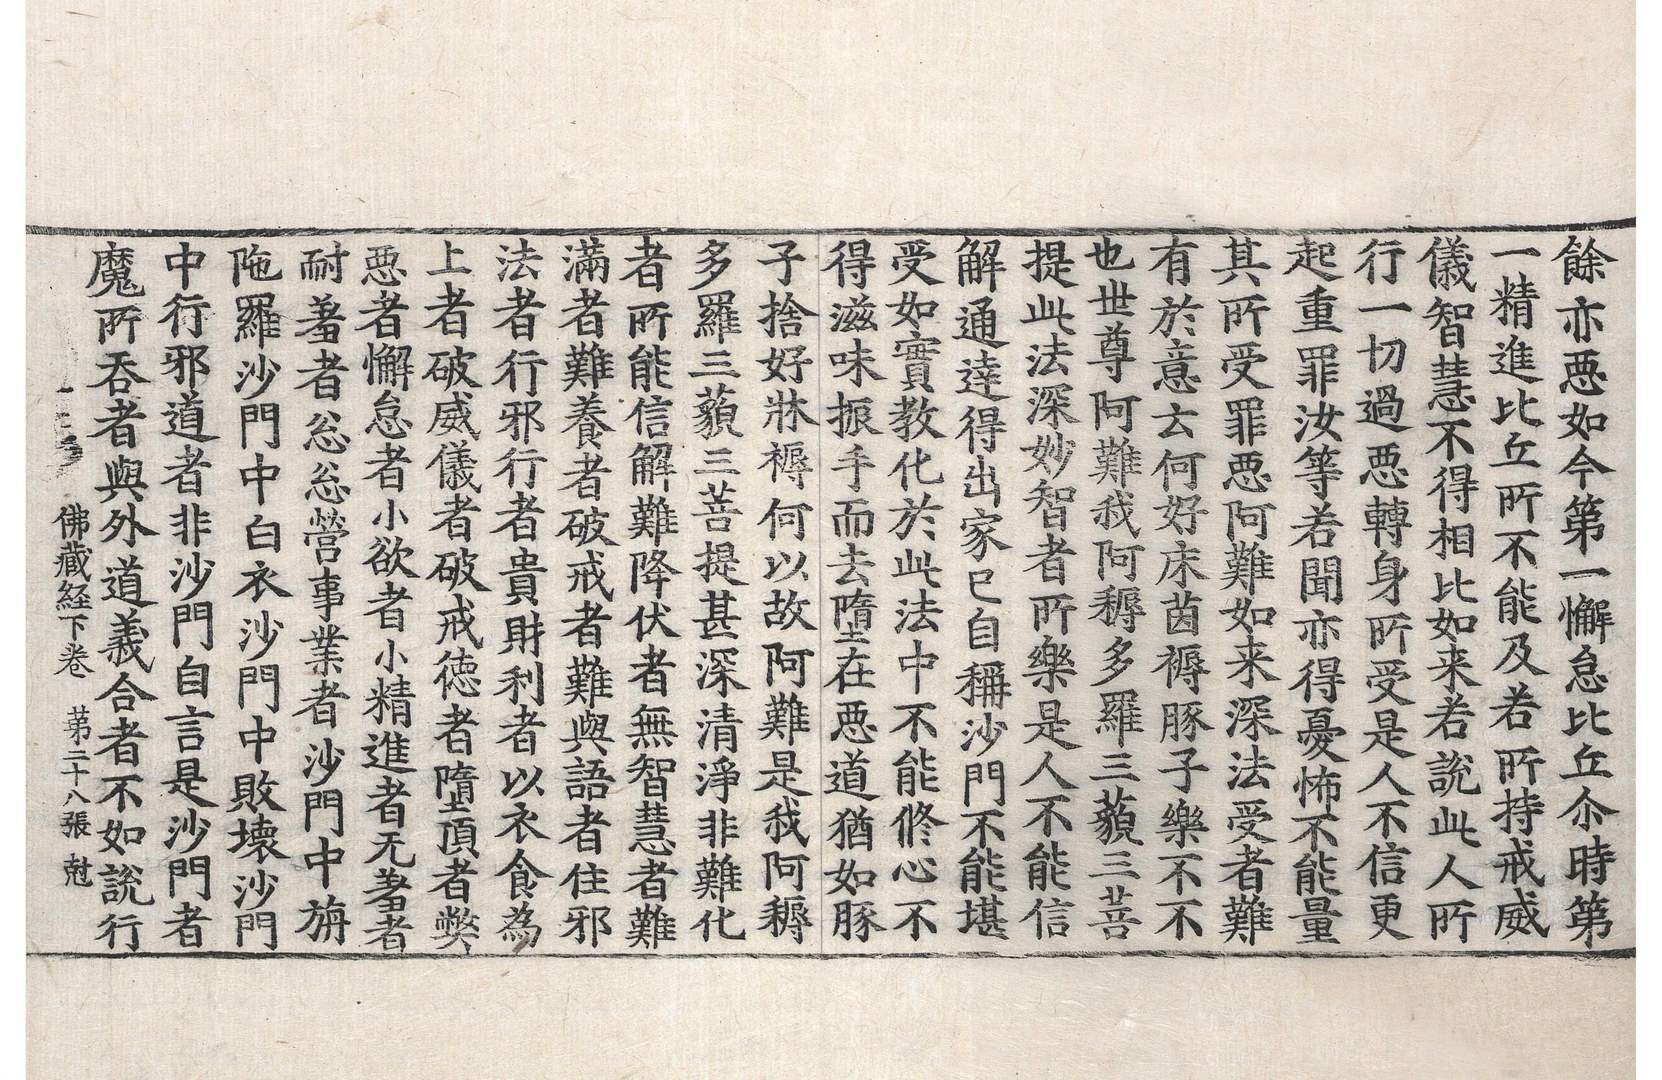 餘亦悪如今第一懈怠比丘尒時第
一精進比丘所不能及若所持戒威
儀智慧不得相比如来若說此人所
行一切過悪轉身所受是人不信更
起重罪汝等若聞亦得憂怖不能量
其所受罪悪阿難如来深法受者難
有於意云何好床茵褥豚子樂不不
也世尊阿難我阿耨多羅三藐三菩
提此法深妙智者所樂是人不能信
解通達得出家已自稱沙門不能堪
受如實教化於此法中不能修心不
得滋味振手而去墮在悪道猶如豚
子捨好牀褥何以故阿難是我阿耨
多羅三藐三菩提甚深清淨非難化
者所能信解難降伏者無智慧者難
滿者難養者破戒者難與語者住邪
法者行邪行者貴財利者以衣食為
上者破威儀者破戒徳者墮頂者弊
悪者懈怠者小欲者小精進者无羞者
耐羞者忩忩營事業者沙門中旃
陁羅沙門中白衣沙門中敗壊沙門
中行邪道者非沙門自言是沙門者
魔所吞者與外道義合者不如說行
佛藏経下卷 第二十八張 尅